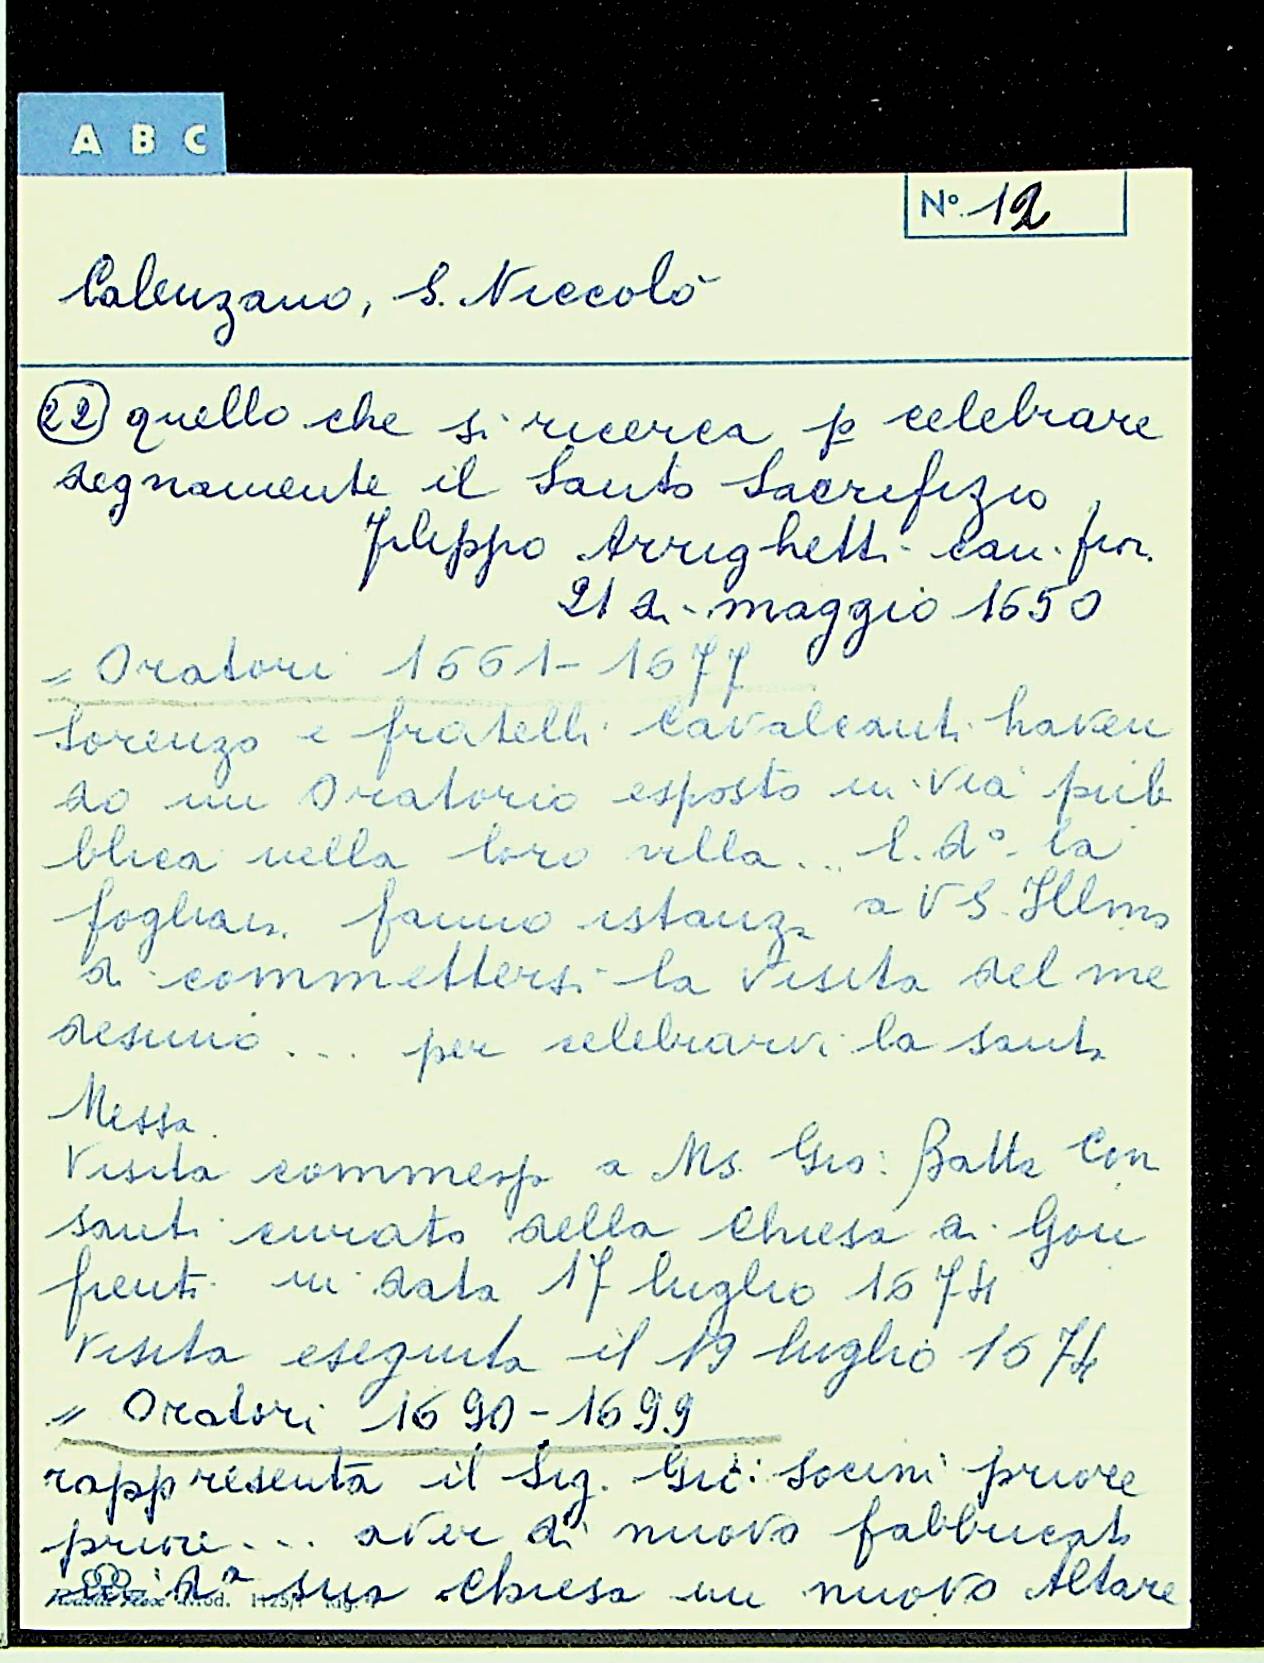 A B C
N° 12
Calenzano, S. Niccolò
22 quello che si ricerca p celebrare
degnamente il Santo Sacrifizio
Filippo Arrighetti can. fior.
21 di maggio 1650
= Oratori 1661-1677
Lorenzo e fratelli Cavalcanti haven
do un Oratorio esposto in via pub
blica nella loro villa... l. d° la
fanno istanza a VS. Illma
di commettersi la visita del me
desimo ... per celebrarvi la santa
Messa.
Visita commessa a Ms. Gio: Batta Con
santi curato della Chiesa di Gon
fienti in data 17 luglio 1674
Visita eseguita il 19 luglio 1674
= Oratori 1690-1699
rappresenta il Sig. Gio: Socini priore
priore... aver di nuovo fabbricato
in da sua Chiesa un nuovo Altare